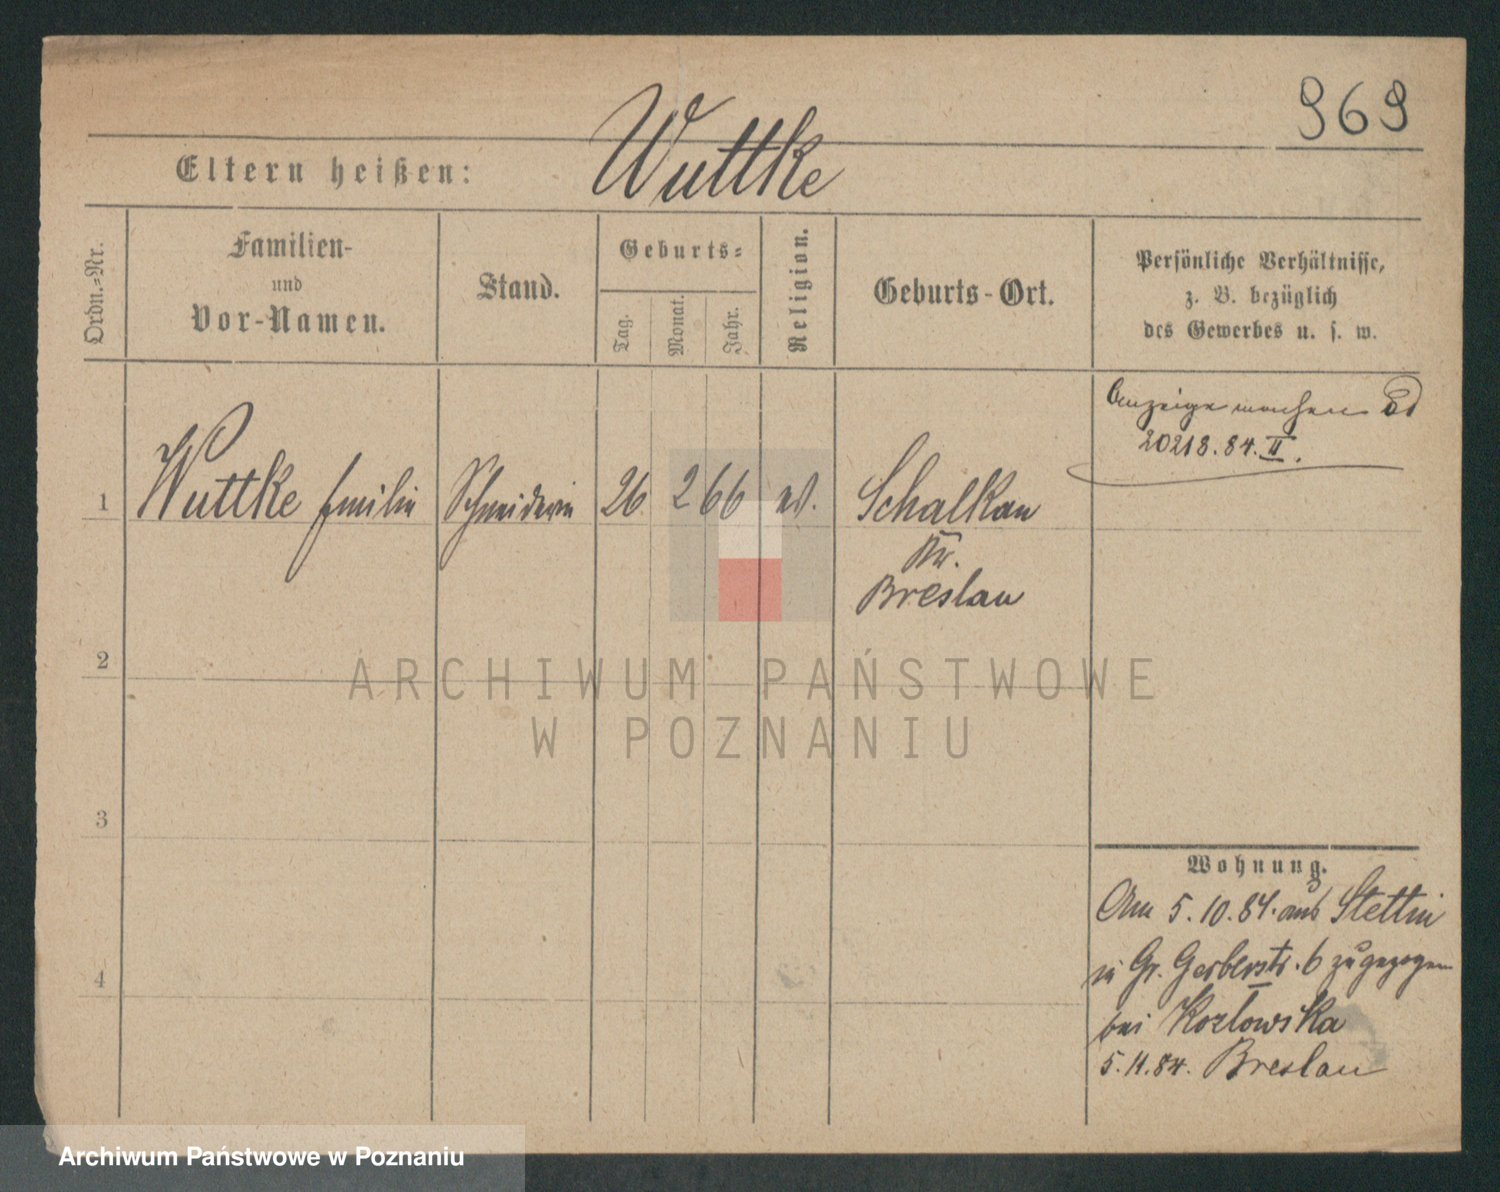 969
Eltern heißen: Wuttke
Ordn.-Nr.
Familien-
und
Vor-Namen.
Stand.
Geburts-
Tag.
Monat.
Jahr.
Religion.
Geburts-Ort.
Persönliche Verhältnisse,
z. B. bezüglich
des Gewerbes u. s. w.
Anzeige machen
20218.84.II.
1 Wuttke Emilie Schneiderin 26 2 66 ev. Schalkau
Kr.
Breslau
2
3
4
Wohnung.
Am 5.10.84. aus Stettin
in Gr. Gerberstr. 6 zugezogen
bei Kozlowska
5.11.84. Breslau
ARCHIWUM PAŃSTWOWE
W POZNANIU
Archiwum Państwowe w Poznaniu